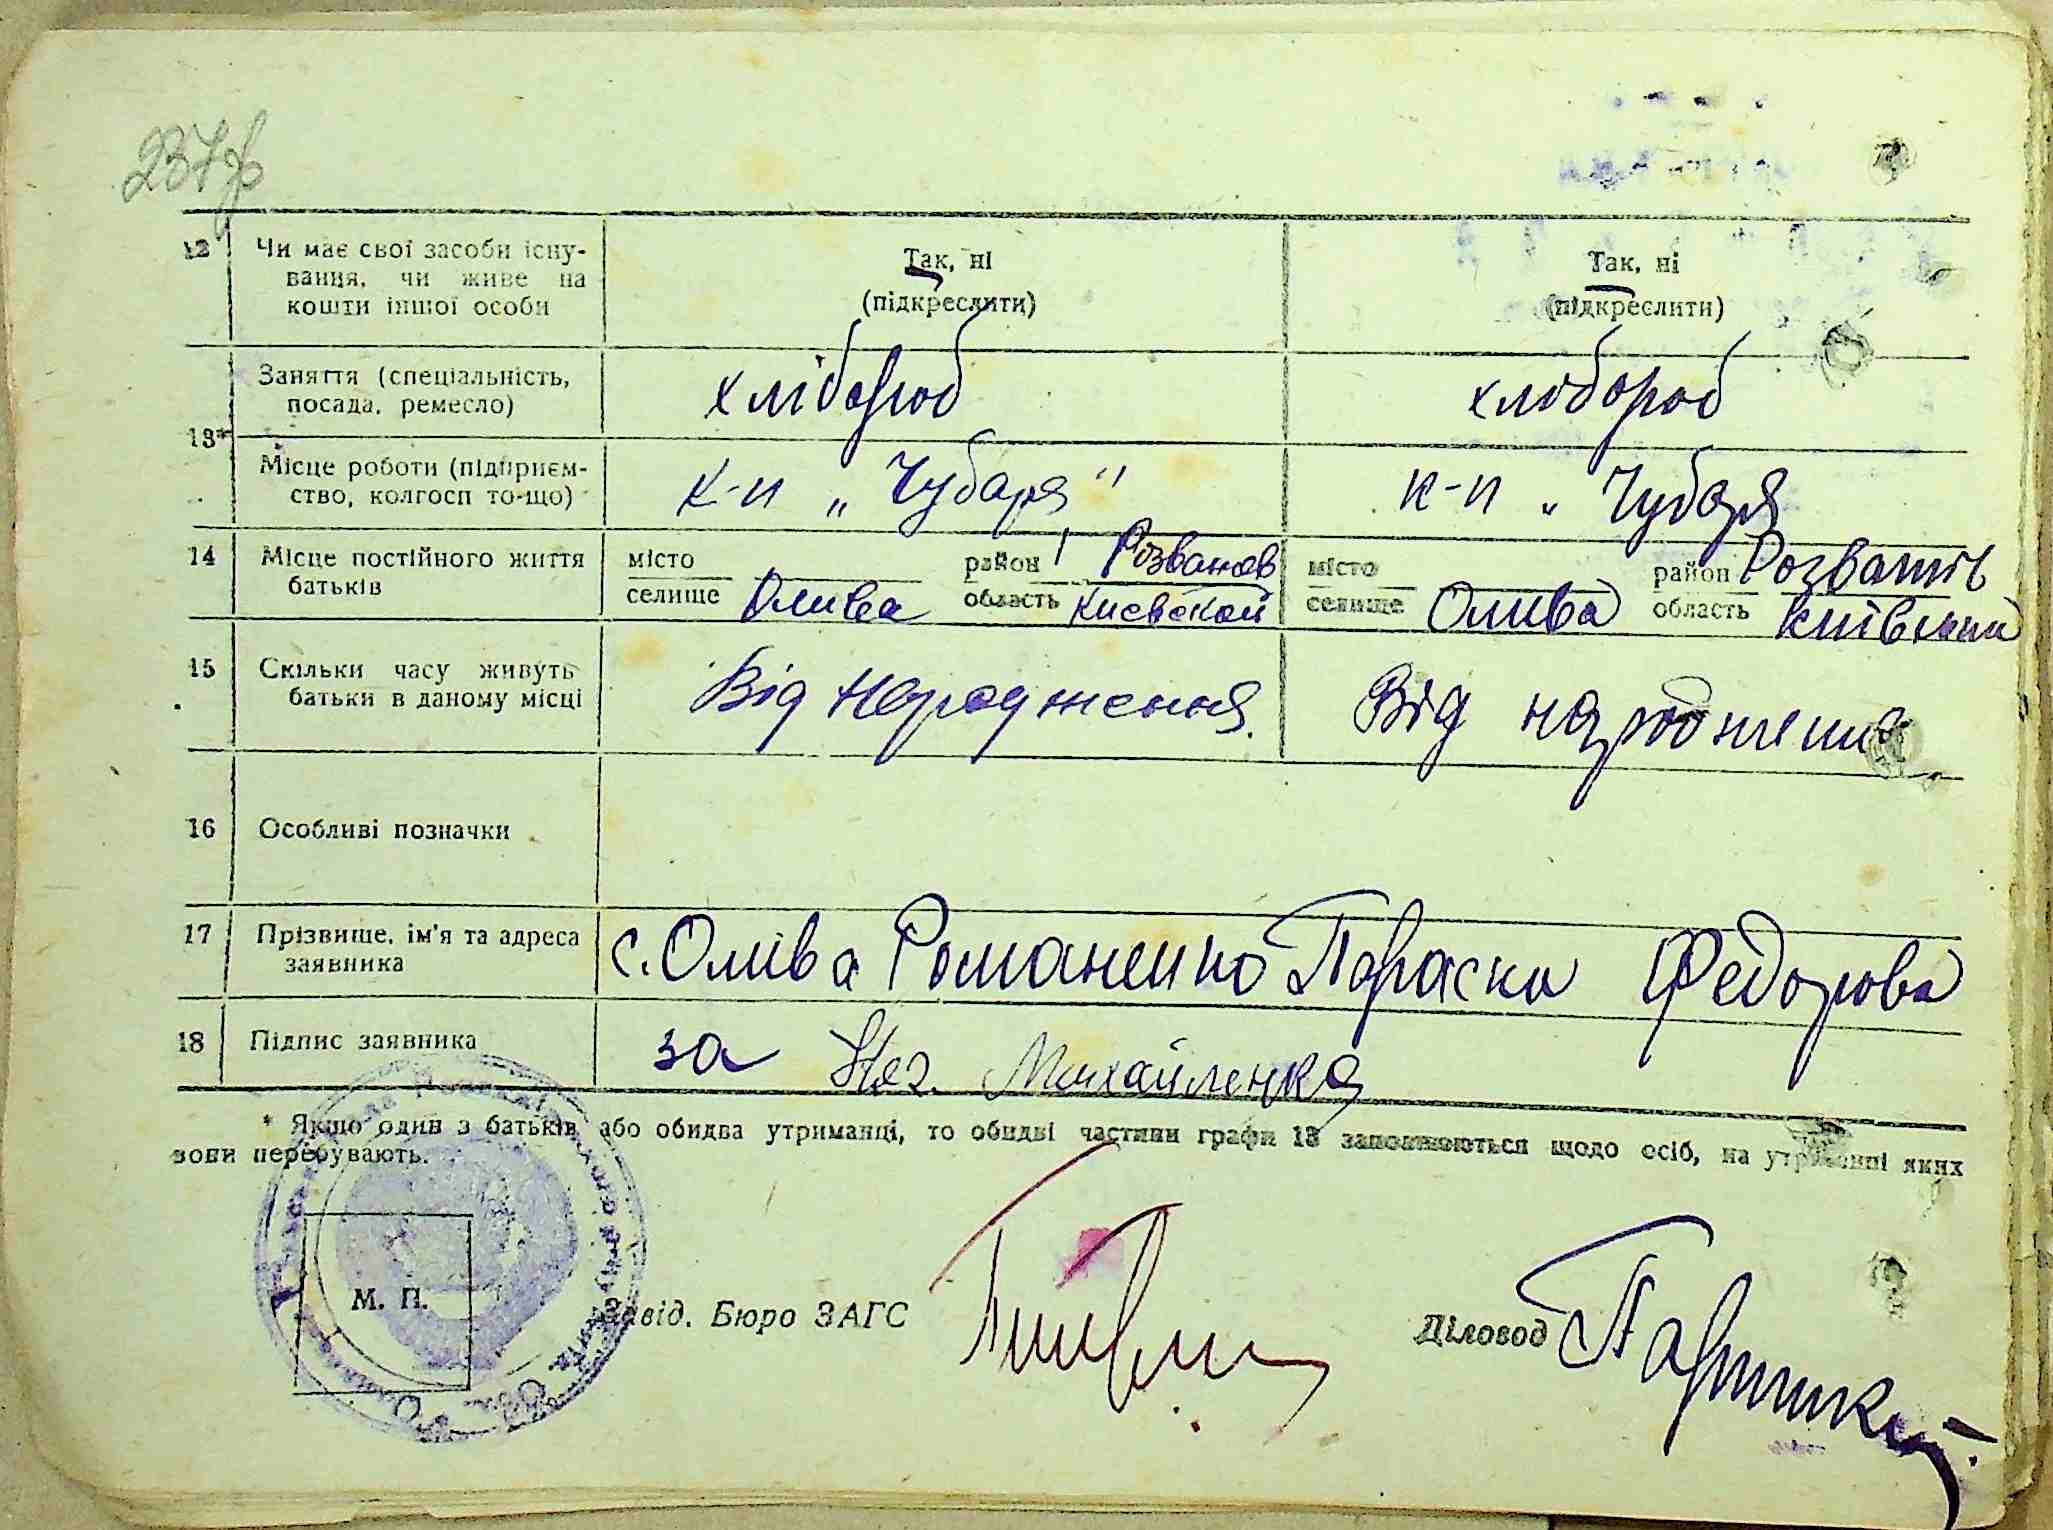 12 Чи має свої засоби існу-
вання, чи живе на
кошти іншої особи
Так, ні
(підкреслити)
Так, ні
(підкреслити)
13*
Заняття (спеціальність,
посада, ремесло)
хлібороб
хлібороб
Місце роботи (підприєм-
ство, колгосп то-що)
к-п „Чубаря"
к-п „Чубаря
14 Місце постійного життя
батьків
місто
селище Олива
район Розважев
область Киевской
місто
селище Олива
район Розватів
область Київської
15 Скільки часу живуть
батьки в даному місці
Від народження.
Від народження
16 Особливі позначки
17 Прізвище, ім'я та адреса
заявника
с. Оліва Романенко Параска Федорова
18 Підпис заявника
за Нег. Михайленко
* Якщо один з батьків або обидва утриманці, то обидві частини графи 13 заповнюються щодо осіб, на утриманні яких
вони перебувають.
М. П.
Завід. Бюро ЗАГС
Діловод